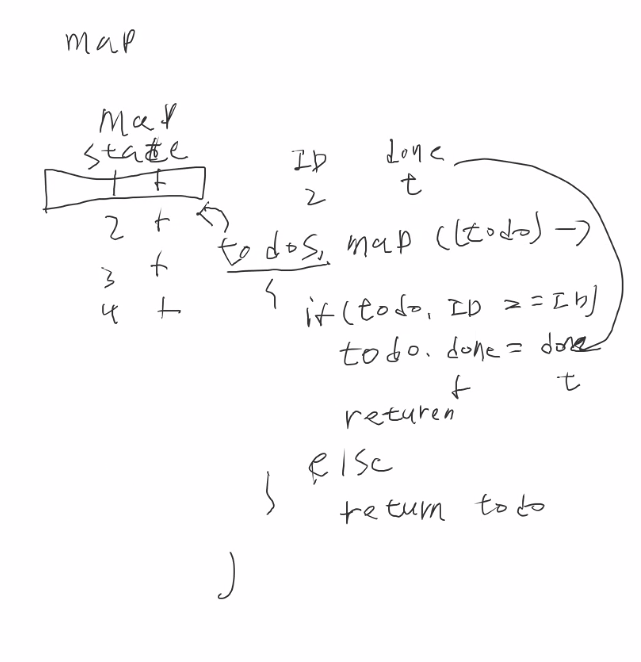 map
map
state
ID done
2 t
1 t
2 t
3 t
4 t
todos. map ((todo) ->
{
if (todo. ID == ID)
todo. done = done
f t
returen
else
return todo
}
)